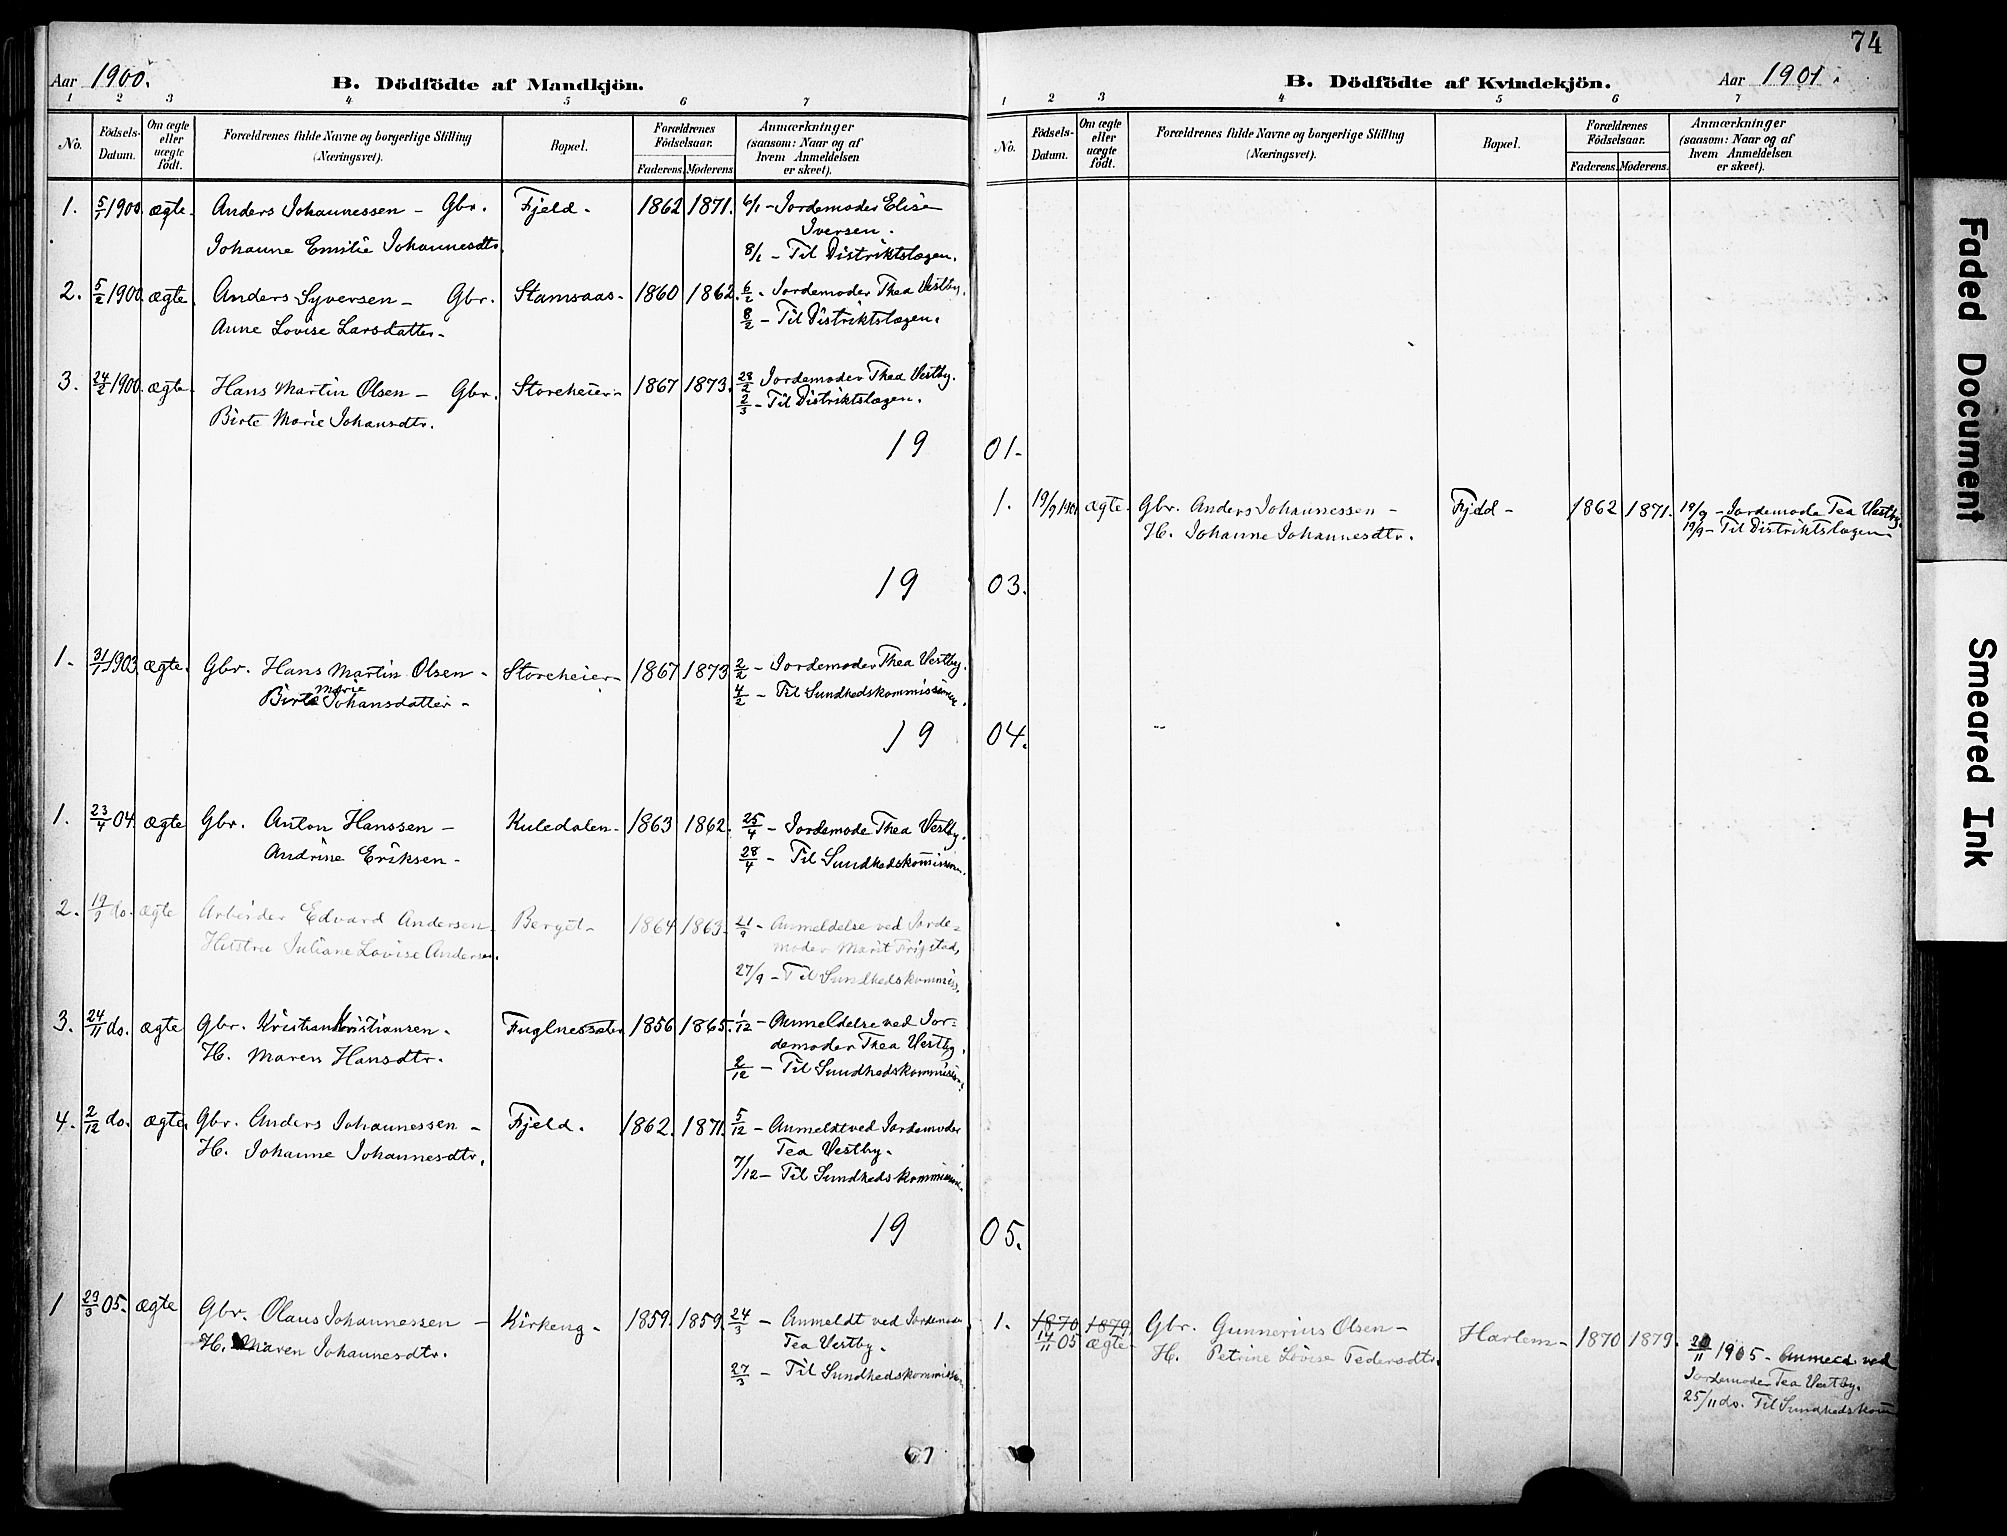 Aar 1900.
B. Dödfödte af Mandkjön.
1 2 3 4 5 6 7
No. Födsels-Datum. Om ægte eller uægte födt. Forældrenes fulde Navne og borgerlige Stilling (Næringsvei). Bopæl. Forældrenes Födselsaar. Faderens. Moderens. Anmærkninger (saasom: Naar og af hvem Anmeldelsen er skeet).
1. 5/1 1900. ægte. Anders Johannessen – Gbr. Fjeld. 1862 1871. 6/1 – Jordemoder Elise
Johanne Emilie Johannesdtr. Iversen.
8/1 – Til Distriktslægen.
2. 5/2 1900. ægte. Anders Syversen – Gbr. Stamsaas. 1860 1862. 6/2 – Jordemoder Thea Vestby.
Anne Lovise Larsdatter – 8/2 – Til Distriktslægen.
3. 24/2 1900. ægte. Hans Martin Olsen – Gbr. Storeheier – 1867 1873. 28/2 Jordemoder Thea Vestby.
Birte Marie Johansdtr. 2/3 – Til Distriktslægen.
19
1. 31/1 1903. ægte. Gbr. Hans Martin Olsen – Storeheier – 1867 1873 2/2 – Jordemoder Thea Vestby.
Birte Marie Johansdatter – 4/2 – Til Sundhedskommissionen.
19
1. 23/4 04. ægte Gbr. Anton Hanssen – Kuledalen – 1863 1862. 25/4 – Jordemode Thea Vestby.
Andrine Eriksen – 28/4 – Til Sundhedskommissionen.
2. 19/9 do. ægte Arbeider Edvard Andersen Berget – 1864 1863. 21/9 – Anmeldelse ved Jorde=
Hustru Juliane Lovise Andersen. moder Marit Frigstad,
27/9 – Til Sundhedskommiss.
3. 24/11 do. ægte Gbr. Kristian Kristiansen – 1856 1865. 1/12 – Anmeldelse ved Jor=
H. Maren Hansdtr. demoder Thea Vestby.
2/12 – Til Sundhedskommission.
4. 2/12 do. ægte. Gbr. Anders Johannessen – Fjeld. 1862. 1871. 5/12 – Anmeldt ved Jordemoder
H. Johanne Johannesdtr. Tea Vestby.
7/12 – Til Sundhedskommission.
19
1 23/3 05. ægte Gbr. Olaus Johannessen – Kirkeng – 1859. 1859. 24/3 – Anmeldt ved Jordemoder
H. Maren Johannesdtr. Tea Vestby.
27/3 – Til Sundhedskommission
74
B. Dödfödte af Kvindekjön.
Aar 1901.
1 2 3 4 5 6 7
No. Födsels-Datum. Om ægte eller uægte födt. Forældrenes fulde Navne og borgerlige Stilling (Næringsvei). Bopæl. Forældrenes Födselsaar. Faderens. Moderens. Anmærkninger (saasom: Naar og af hvem Anmeldelsen er skeet).
01.
1. 19/9 1901 ægte. Gbr. Anders Johannessen – Fjeld – 1862 1871. 19/9 – Jordemode Tea Vestby.
H. Johanne Johannesdtr. 19/9 – Til Distriktslægen
03.
04.
05.
1. 1870 1879 Gbr. Gunnerius Olsen – Harlem – 1870 1879. 20/11 1905 – Anmeld ved
17/11 05 ægte H. Petrine Lovise Pedersdtr. Jordemoder Tea Vestby.
25/11 do. Til Sundhedskom
Faded Document
Smeared Ink